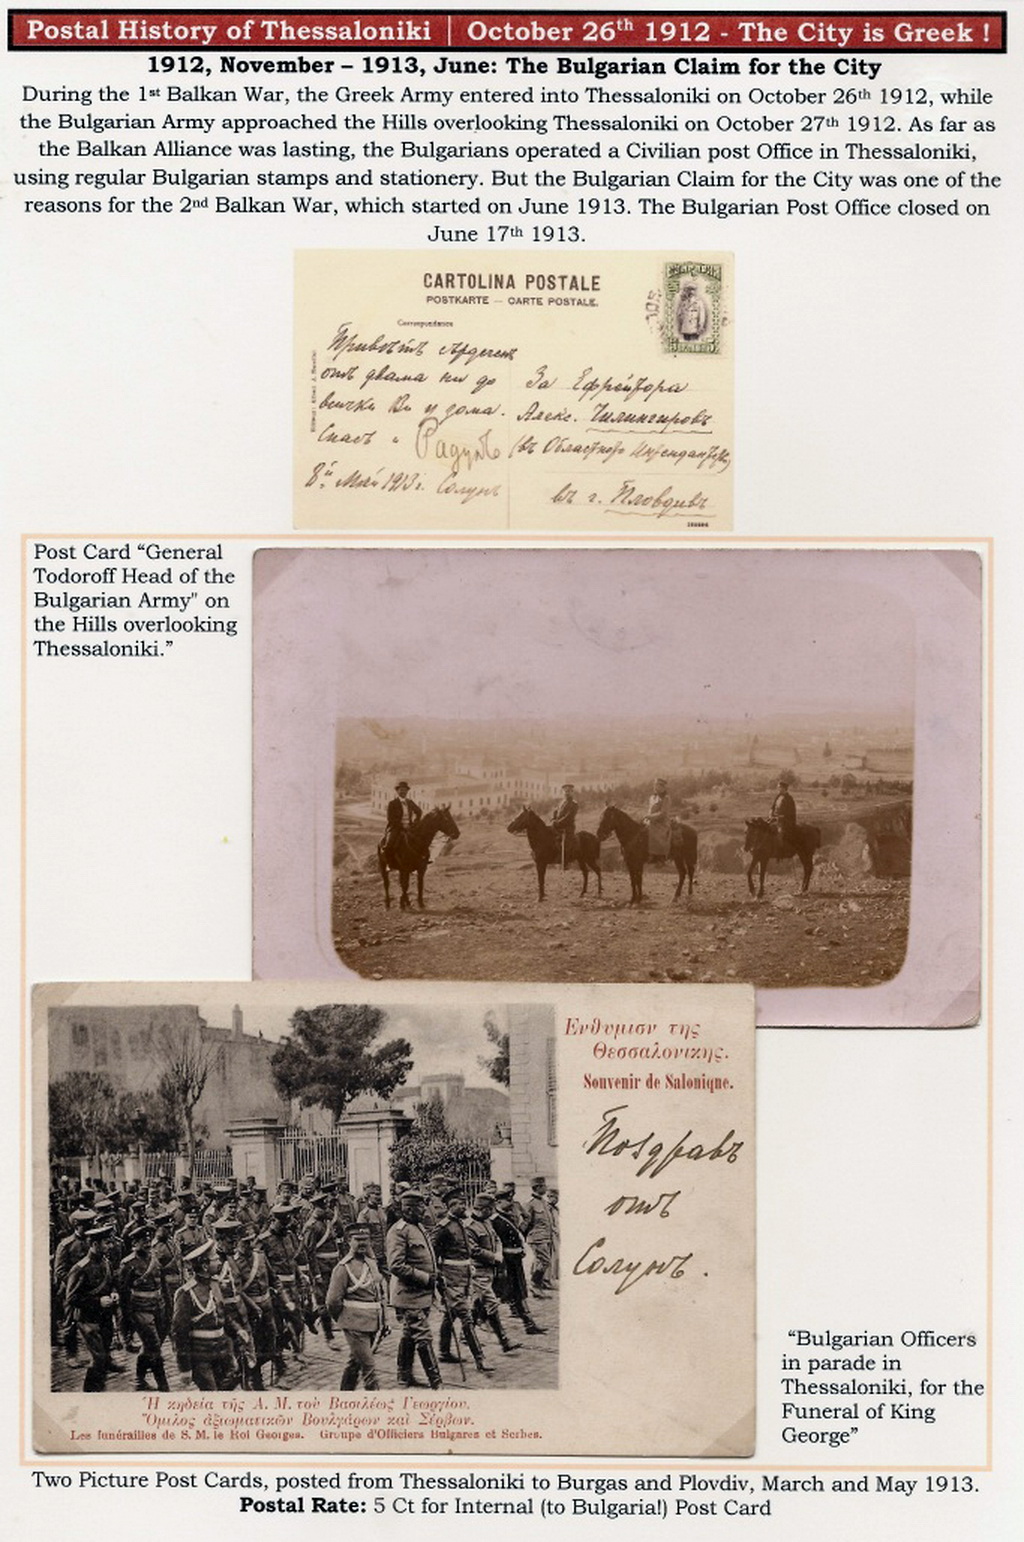 Postal History of Thessaloniki | October 26th 1912 - The City is Greek !
1912, November – 1913, June: The Bulgarian Claim for the City
During the 1st Balkan War, the Greek Army entered into Thessaloniki on October 26th 1912, while
the Bulgarian Army approached the Hills overlooking Thessaloniki on October 27th 1912. As far as
the Balkan Alliance was lasting, the Bulgarians operated a Civilian post Office in Thessaloniki,
using regular Bulgarian stamps and stationery. But the Bulgarian Claim for the City was one of the
reasons for the 2nd Balkan War, which started on June 1913. The Bulgarian Post Office closed on
June 17th 1913.
CARTOLINA POSTALE
POSTKARTE — CARTE POSTALE.
Correspondance
Привѣтъ сърдеченъ
отъ двама ни до
всички Ви у дома.
Спасъ и Радулъ
8й Май 1913 г. Солунъ
За Ефрейтора
Алекс. Чилингировъ
(въ Областното Интендантство)
въ г. Пловдивъ
Post Card “General
Todoroff Head of the
Bulgarian Army" on
the Hills overlooking
Thessaloniki.”
Ενθυμισν της
Θεσσαλονικης.
Souvenir de Salonique.
Поздравъ
отъ
Солунъ.
Ἡ κηδεία τῆς Α. Μ. τοῦ Βασιλέως Γεωργίου.
Ὅμιλος ἀξιωματικῶν Βουλγάρων καὶ Σέρβων.
Les funérailles de S. M. le Roi Georges. Groupe d'Officiers Bulgares et Serbes.
“Bulgarian Officers
in parade in
Thessaloniki, for the
Funeral of King
George”
Two Picture Post Cards, posted from Thessaloniki to Burgas and Plovdiv, March and May 1913.
Postal Rate: 5 Ct for Internal (to Bulgaria!) Post Card